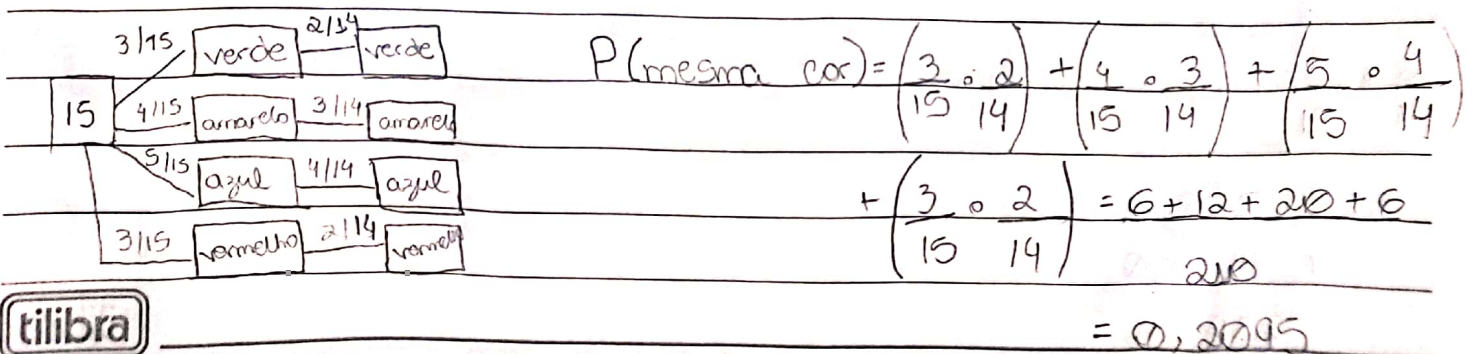 3/15 verde 2/14 verde
15
4/15 amarelo 3/14 amarelo
5/15 azul 4/14 azul
3/15 vermelho 2/14 vermelho
P(mesma cor) = (3/15 · 2/14) + (4/15 · 3/14) + (5/15 · 4/14)
+ (3/15 · 2/14) = 6+12+20+6
210
= 0,2095
tilibra